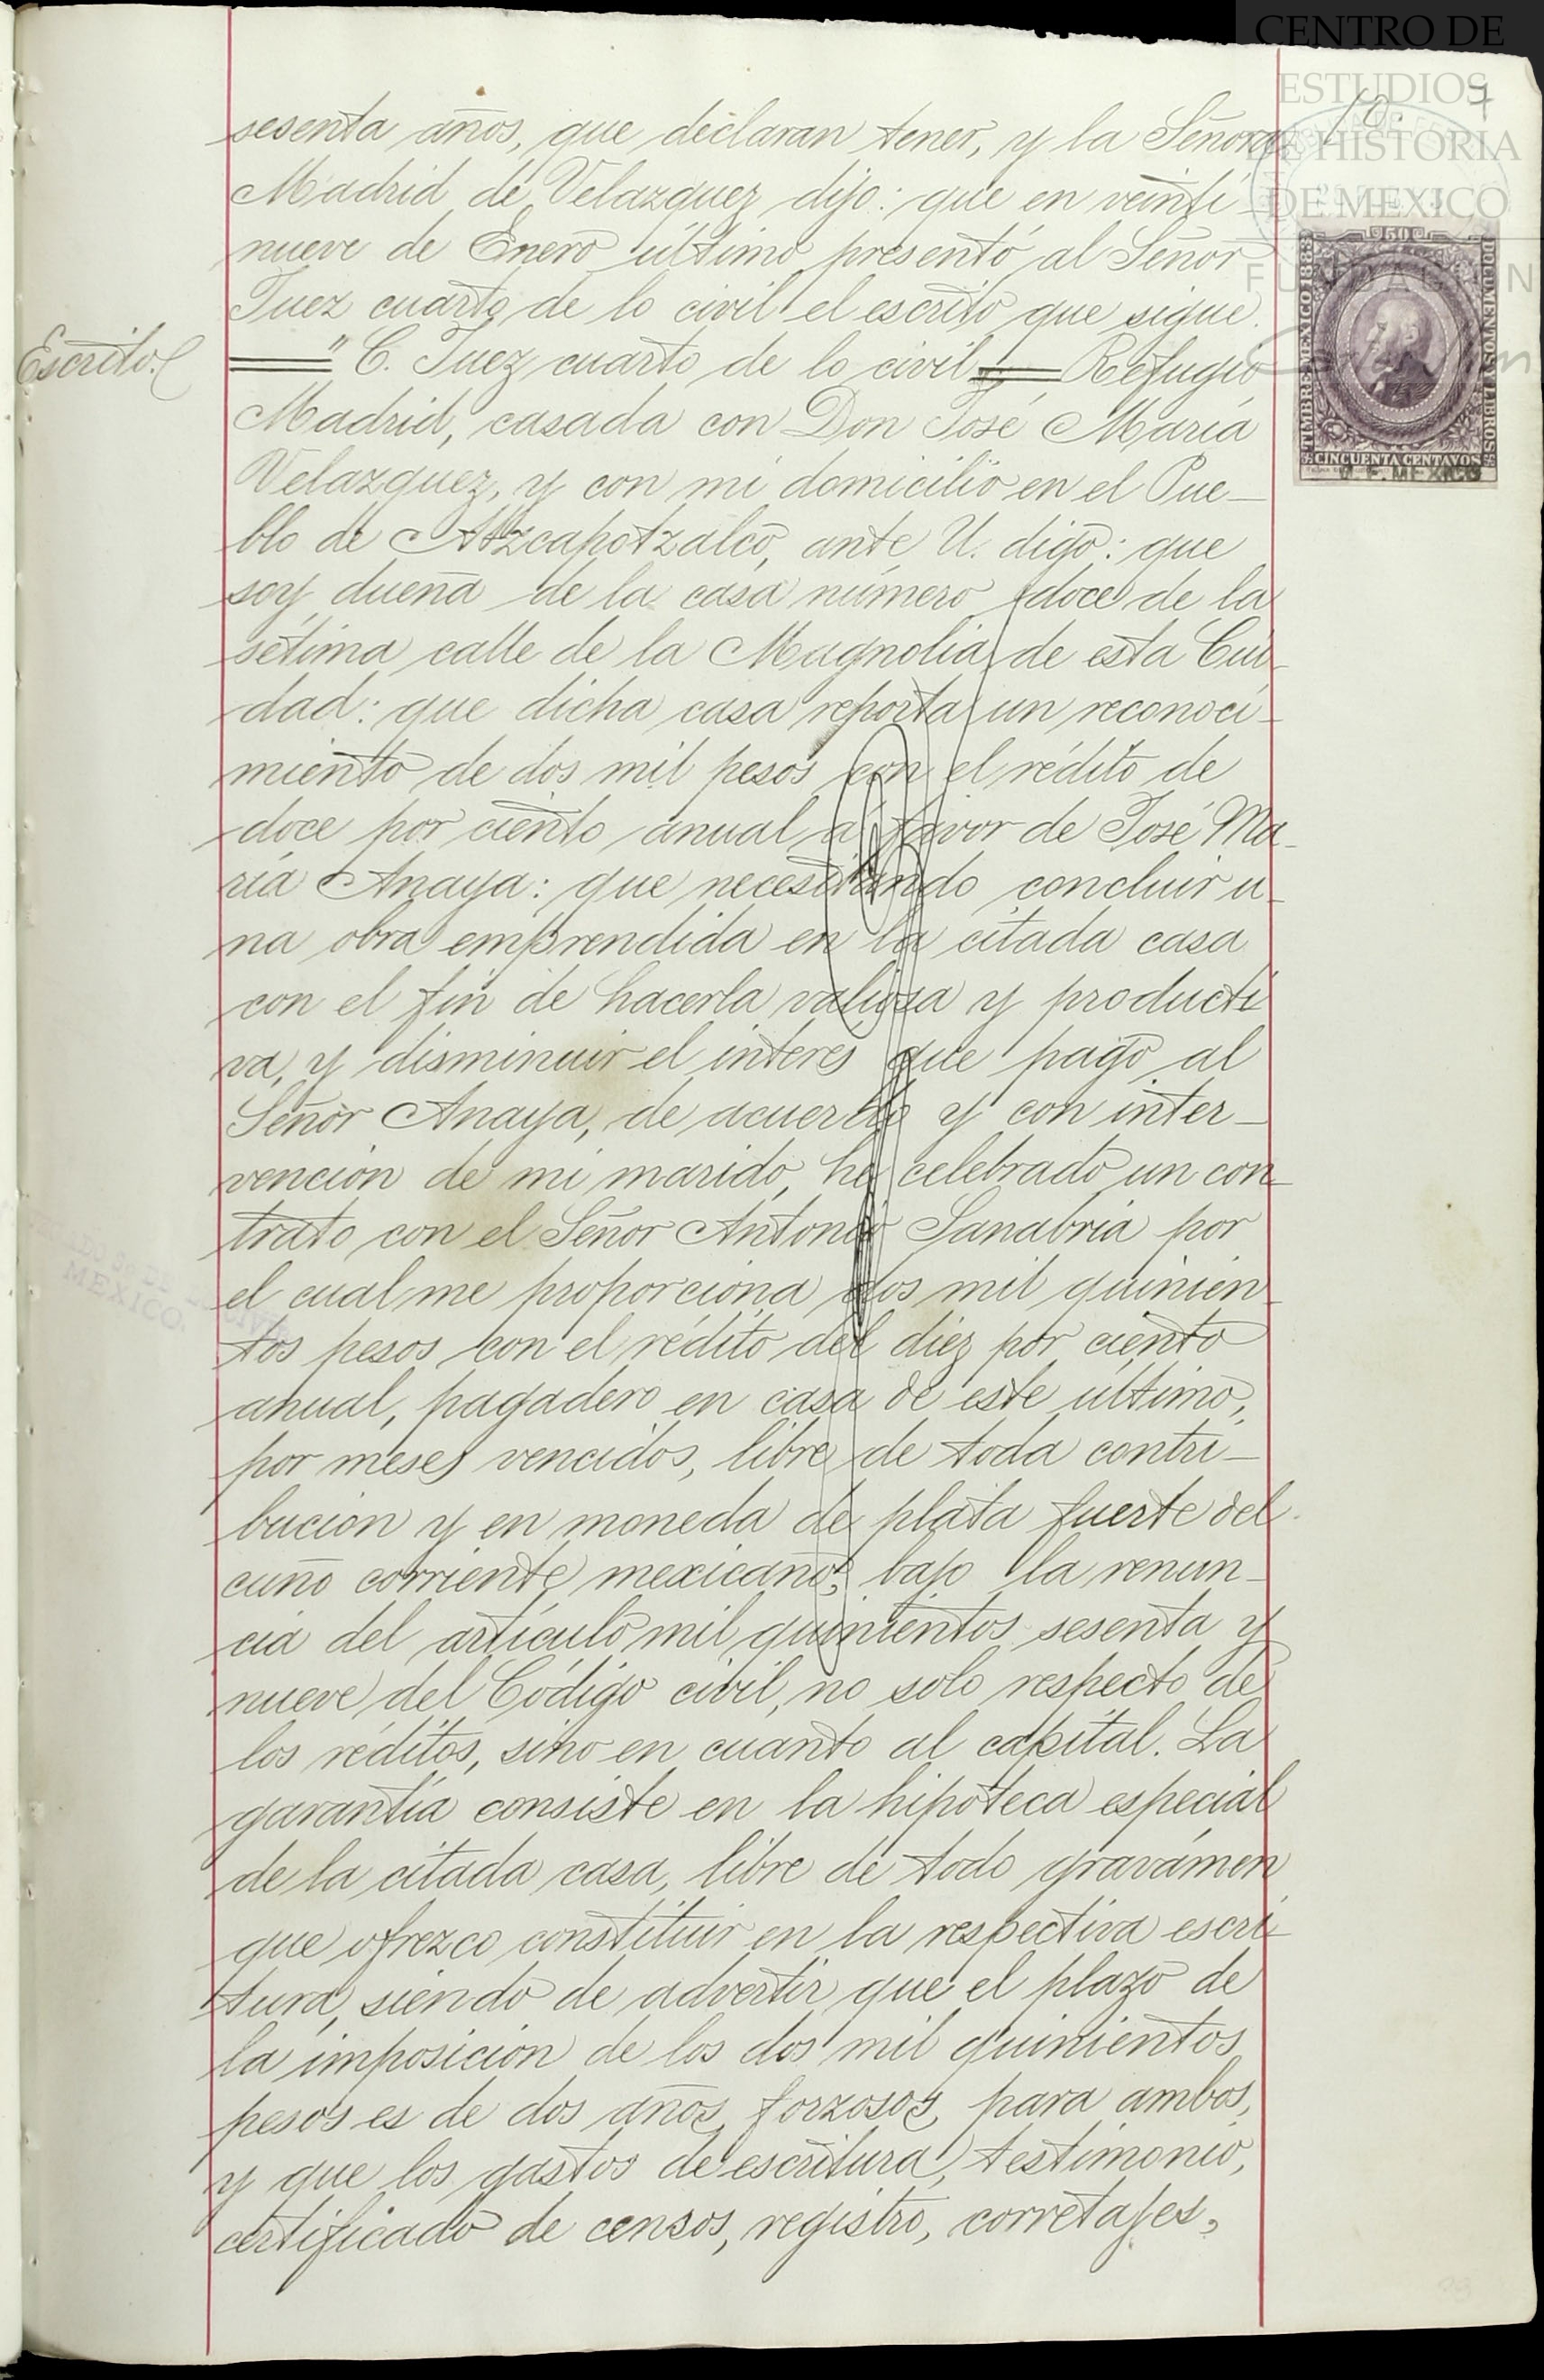 CENTRO DE
ESTUDIOS
DE HISTORIA
DE MEXICO
FUNDACIÓN
10. 9
TIMBRE MEXICO 1883
50
DOCUMENTOS Y LIBROS
CINCUENTA CENTAVOS
MEXICO
sesenta años, que declaran tener, y la Señora
Madrid de Velazquez dijo: que en veinti
nueve de Enero último presentó al Señor
Juez cuarto de lo civil el escrito que sigue.
Escrito.
" C. Juez cuarto de lo civil = Refugio
Madrid, casada con Don José María
Velazquez, y con mi domicilio en el Pue-
blo de Atzcapotzalco, ante U. digo: que
soy dueña de la casa número doce de la
sétima calle de la Magnolia de esta Ciu-
dad: que dicha casa reporta un reconoci-
miento de dos mil pesos con el rédito de
doce por ciento anual á favor de José Ma-
ría Anaya: que necesitando concluir u-
na obra emprendida en la citada casa
con el fin de hacerla valiosa y producti
va, y disminuir el interes que pago al
Señor Anaya, de acuerdo y con inter-
vención de mi marido, he celebrado un con-
trato con el Señor Antonio Sanabria por
el cual me proporciona dos mil quinien-
tos pesos con el rédito del diez por ciento
anual, pagadero en casa de este último,
por meses vencidos, libre de toda contri-
bución y en moneda de plata fuerte del
cuño corriente mexicano, bajo la renun-
cia del artículo mil quinientos sesenta y
nueve del Código civil, no solo respecto de
los réditos, sino en cuanto al capital. La
garantía consiste en la hipoteca especial
de la citada casa, libre de todo gravámen
que ofrezco constituir en la respectiva escri-
tura, siendo de advertir que el plazo de
la imposición de los dos mil quinientos
pesos es de dos años forzosos para ambos,
y que los gastos de escritura, testimonio,
certificado de censos, registro, corretajes,